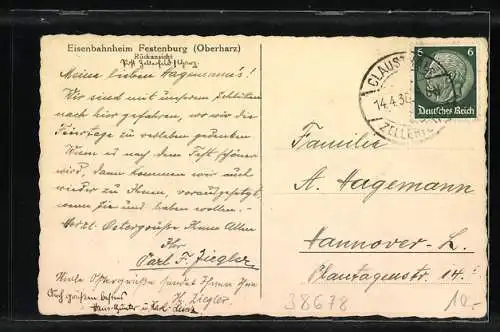 Eisenbahnheim Festenburg (Oberharz)
Rückansicht
Post Zellerfeld-Harz
Meine lieben Hagemann's!
Wir sind mit unserem Schlitten
nach hier gefahren, wo wir die
Feiertage zu verleben gedenken
Wenn es nach dem Fest schöner
wird, dann kommen wir auch
wieder zu Ihnen, vorausgesetzt,
wenn Sie uns haben wollen.
Herzl. Ostergrüße Ihnen Allen
Ihr
Karl F. Ziegler
Viele Ostergrüße sendet Ihnen Ihre
H. Ziegler
Auch grüßen bestens
Hans-Günter u.
CLAUSTHAL
14.4.36
ZELLERFELD
6 6
Deutsches Reich
Familie
A. Hagemann
Hannover-L.
Plantagenstr. 14.
38678
12.-